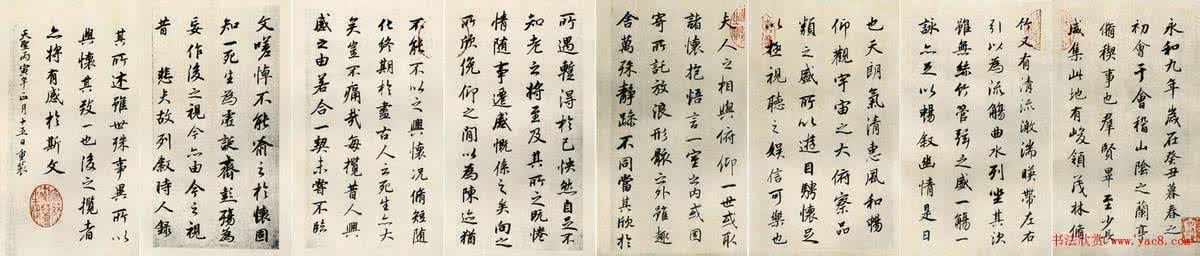 永和九年歲在癸丑暮春之
初會于會稽山陰之蘭亭
脩稧事也羣賢畢至少長
咸集此地有峻領茂林脩
竹又有清流激湍暎帶左右
引以為流觴曲水列坐其次
雖無絲竹管弦之盛一觴一
詠亦足以暢叙幽情是日
也天朗氣清惠風和暢
仰觀宇宙之大俯察品
類之盛所以遊目騁懷足
以極視聽之娛信可樂也
夫人之相與俯仰一世或取
諸懷抱悟言一室之內或因
寄所託放浪形骸之外雖趣
舍萬殊靜躁不同當其欣於
所遇蹔得於己怏然自足不
知老之將至及其所之既惓
情隨事遷感慨係之矣向之
所欣俛仰之閒以為陳迹猶
不能不以之興懷況脩短隨
化終期於盡古人云死生亦大
矣豈不痛哉每攬昔人興
感之由若合一契未嘗不臨
文嗟悼不能喻之於懷固
知一死生為虛誕齊彭殤為
妄作後之視今亦由今之視
昔 悲夫故列叙時人錄
其所述雖世殊事異所以
興懷其致一也後之攬者
亦將有感於斯文
天聖丙寅年正月十五日重裝
书法欣赏 www.yac8.com